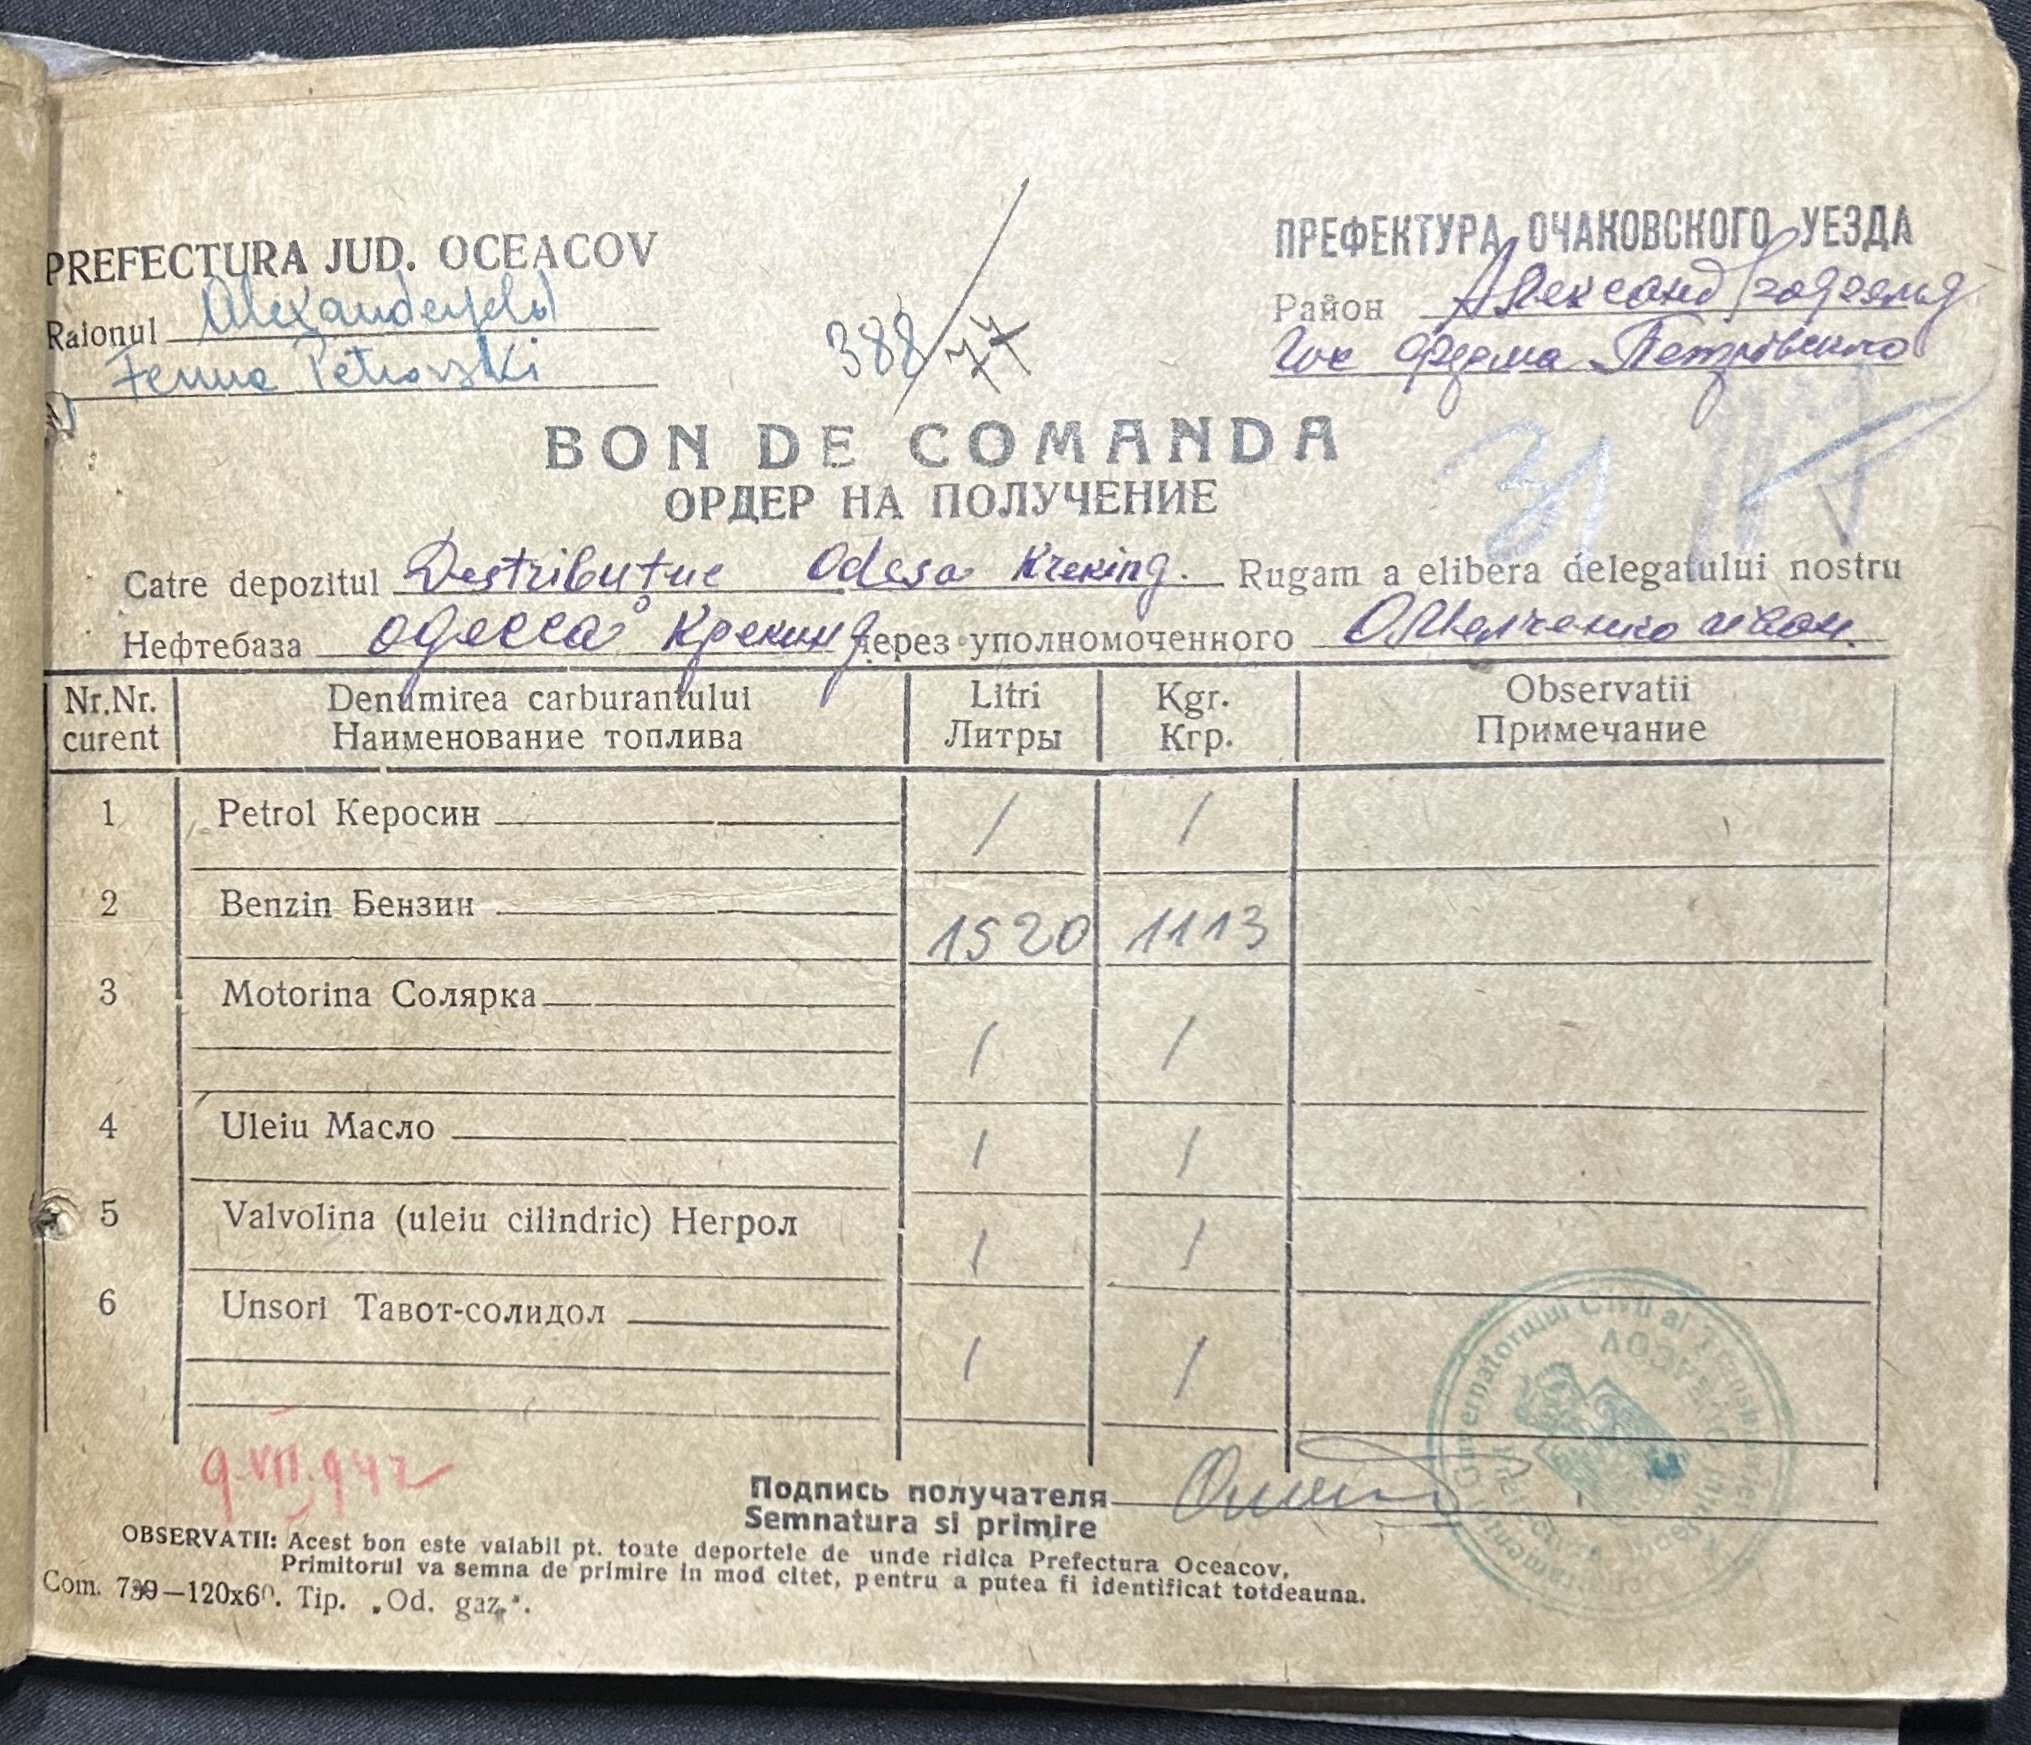 PREFECTURA JUD. OCEACOV
Raionul Alexanderfeld
Ferma Petrovski
388/77
ПРЕФЕКТУРА ОЧАКОВСКОГО УЕЗДА
Район
Ферма Петровского
31
BON DE COMANDA
ОРДЕР НА ПОЛУЧЕНИЕ
Catre depozitul Odesa Kreking. Rugam a elibera delegatului nostru
Нефтебаза Одесса Крекинг через уполномоченного Омельченко Иван.
Nr.Nr. curent Denumirea carburantului Litri Kgr. Observatii
Наименование топлива Литры Кгр. Примечание
1 Petrol Керосин / /
2 Benzin Бензин 1520 1113
3 Motorina Солярка / /
4 Uleiu Масло / /
5 Valvolina (uleiu cilindric) Негрол / /
6 Unsori Тавот-солидол / /
9.VII.942
Подпись получателя
Semnatura si primire
Guvernatorului Civil al Transnistriei
OBSERVATII: Acest bon este valabil pt. toate deportele de unde ridica Prefectura Oceacov,
Primitorul va semna de primire in mod citet, pentru a putea fi identificat totdeauna.
Com. 739—120x60. Tip. „Od. gaz.".